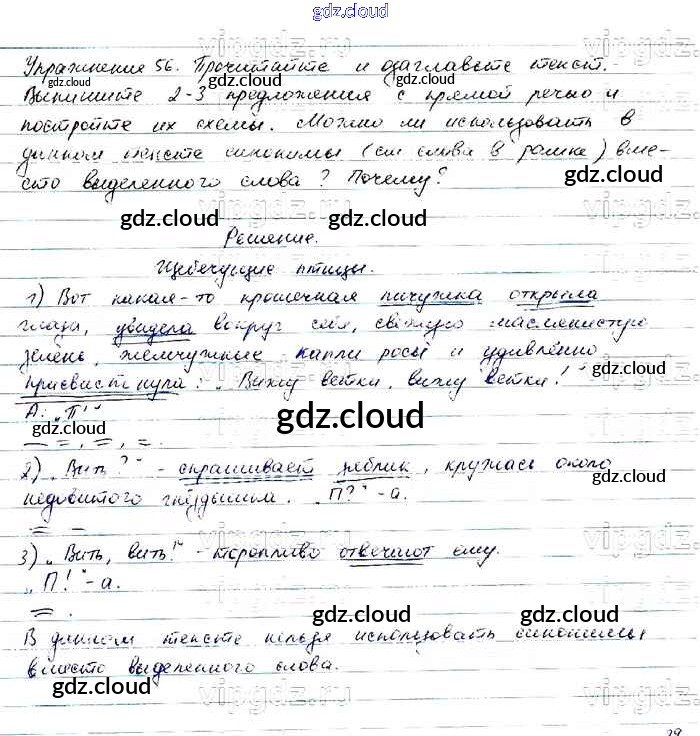 gdz.cloud
Упражнение 56. Прочитайте и озаглавьте текст.
Выпишите 2-3 предложения с прямой речью и
постройте их схемы. Можно ли использовать в
данном тексте синонимы (см слова в рамке) вме-
сто выделенного слова? Почему?
Решение.
Щебечущие птицы.
1) Вот какая-то крошечная пичужка открыла
глаза, увидела вокруг себя, свежую маслянистую
зелень, жемчужные капли росы и удивлённо
присвистнула: „Вижу ветки, вижу ветки!"
А: „П!"
2) „Вить?" - спрашивает зяблик, кружась около
недовитого гнёздышка. „П?" - а.
3) „Вить, вить!" - торопливо отвечают ему.
„П!" - а.
В данном тексте нельзя использовать синонимы
вместо выделенного слова.
gdz.cloud
vipgdz.ru